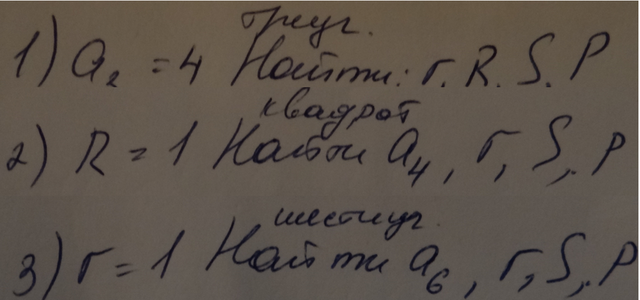 треуг.
1) a₂ = 4 Найти: r. R. S. P
квадрот
2) R = 1 Найти a₄, r, S, P
шестиуг.
3) r = 1 Найти a₆, r, S, P